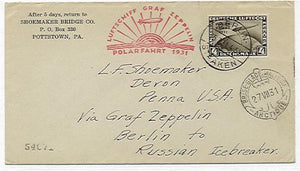 After 5 days, return to
SHOEMAKER BRIDGE CO.
P. O. Box 330
POTTSTOWN, PA.
LUFTSCHIFF GRAF ZEPPELIN
POLARFAHRT 1931
STAAKEN
L.F. Shoemaker
Devon
Penna U.S.A.
Via Graf Zeppelin
Berlin to
Russian Icebreaker.